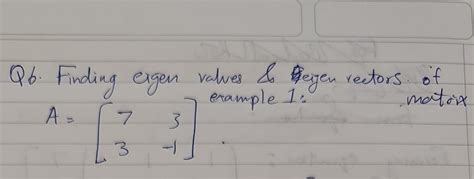 Q6. Finding eigen values & eigen vectors of matrix
example 1:
A = [ 7 3
3 -1 ].